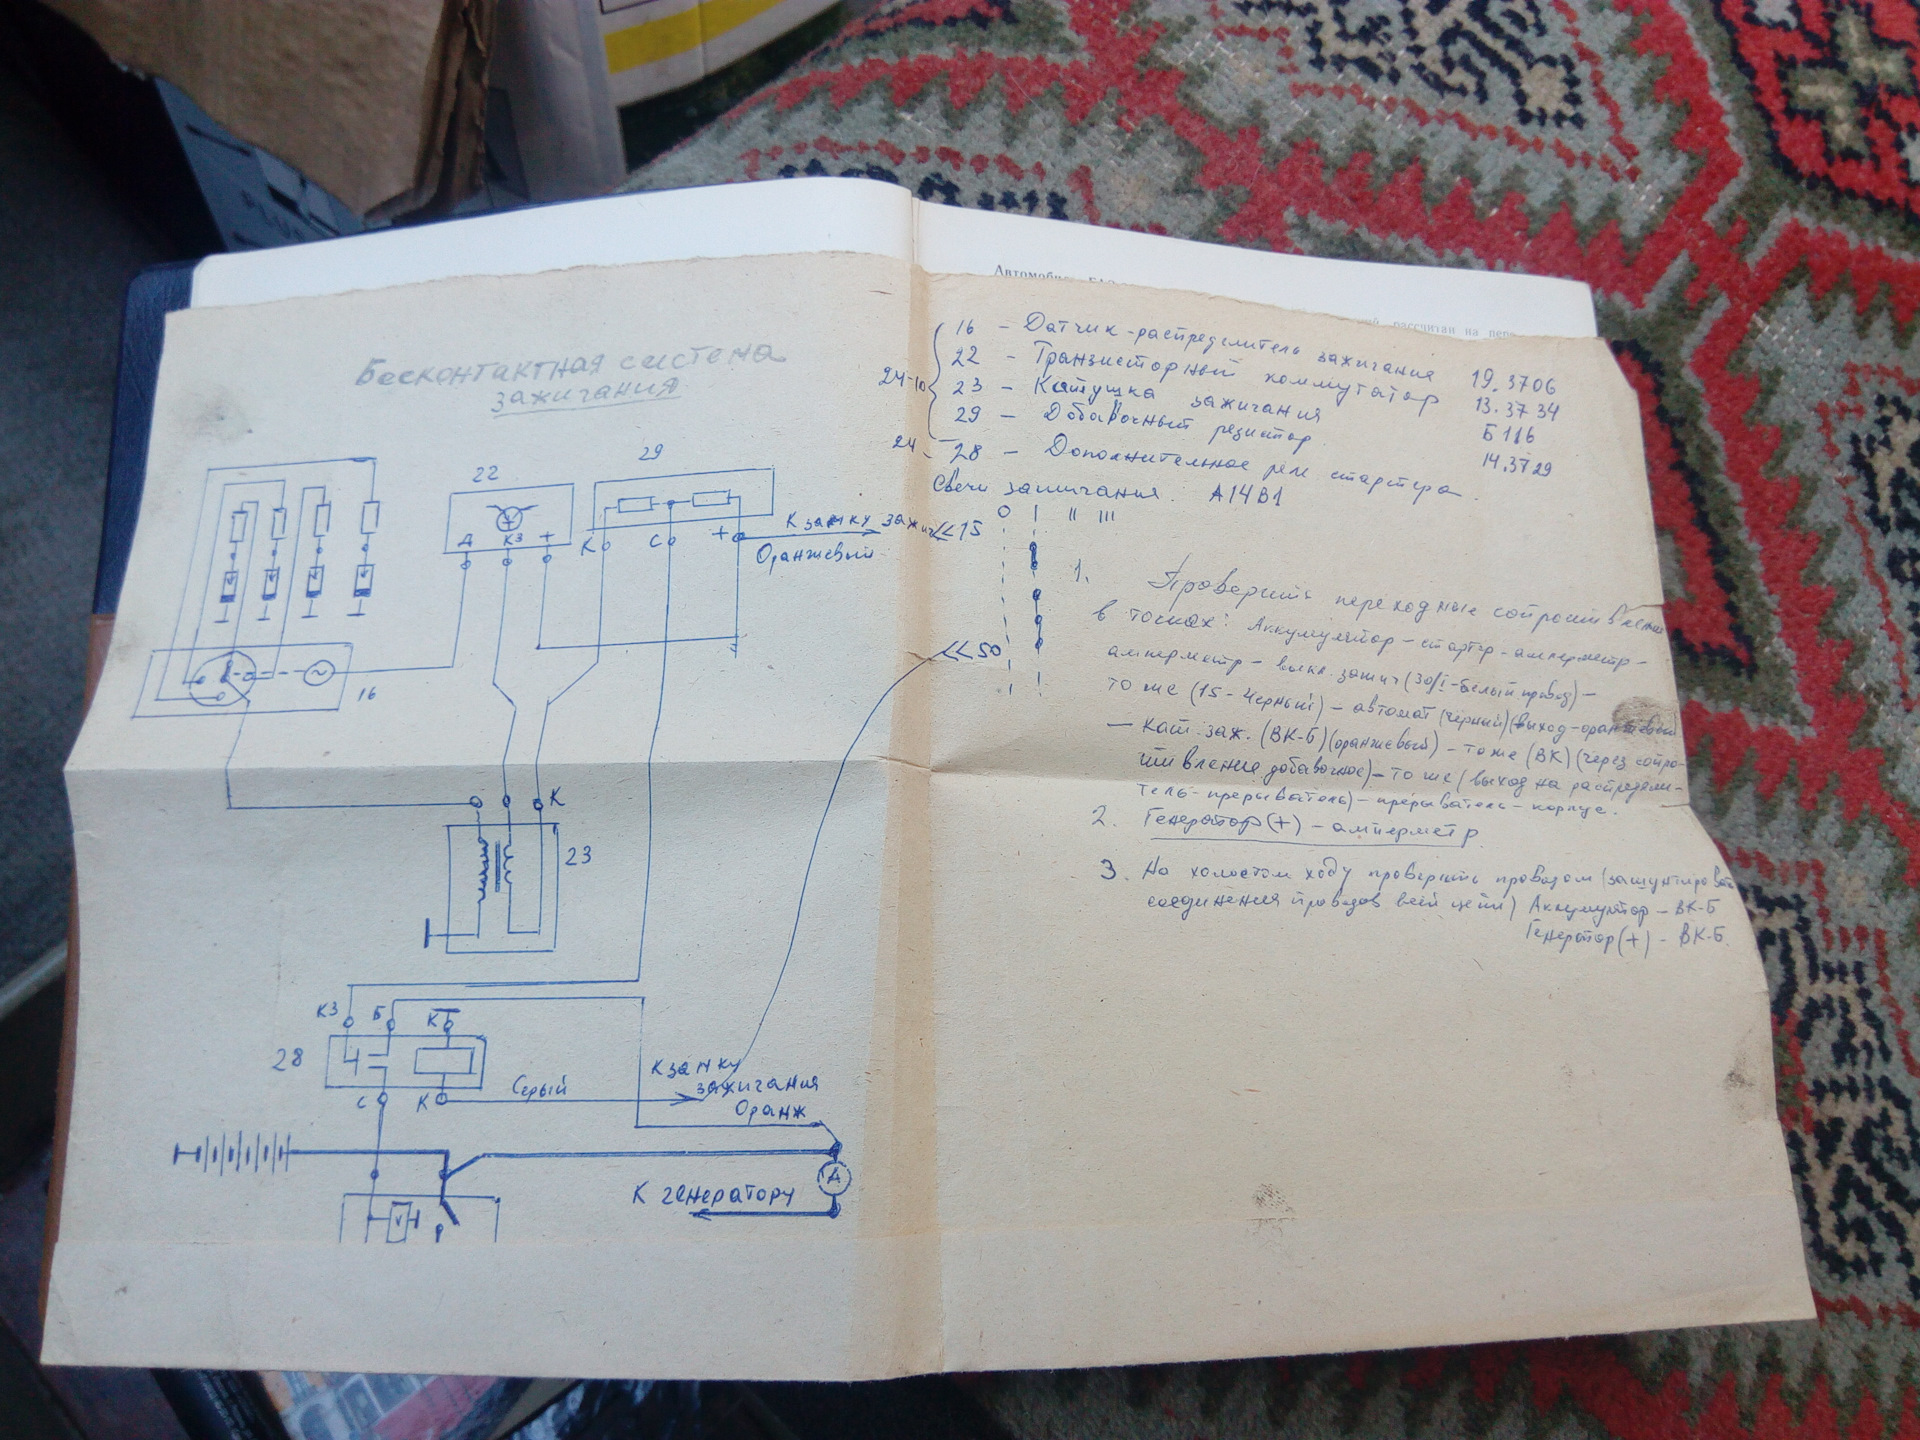 Бесконтактная система
зажигания
22
29
Д КЗ +
К С +
К замку зажиг
Оранжевый
16
К
23
КЗ Б КБ
28
С К
Серый
К замку
зажигания
Оранж
А
К генератору
Автомобиль
рассчитан на
24-10
16 - Датчик-распределитель зажигания 19.3706
22 - Транзисторный коммутатор 13.3734
23 - Катушка зажигания Б116
29 - Добавочный резистор 14.3729
24 - 28 - Дополнительное реле стартера.
Свечи зажигания. А14В1
0 I II III
15
50
1. Проверить переходные сопротивления
в точках: Аккумулятор - стартер - амперметр -
амперметр - выкл. зажиг (30/1 - белый провод) -
то же (15 - Черный) - автомат (чёрный) (выход - оранжевый
- Кат. заж. (ВК-Б) (оранжевый) - то же (ВК) (через сопро-
тивление добавочное) - то же (выход на распредели-
тель - прерыватель) - прерыватель - корпус.
2. Генератор (+) - амперметр
3. На холостом ходу проверить проводом (зашунтировать
соединения проводов всей цепи) Аккумулятор - ВК-Б
Генератор (+) - ВК-Б.